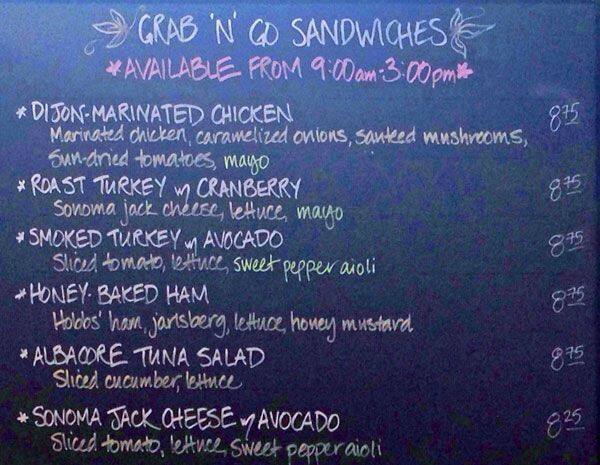 GRAB 'N' GO SANDWICHES
*AVAILABLE FROM 9:00am-3:00pm*
* DIJON-MARINATED CHICKEN 8.75
Marinated chicken, caramelized onions, sauteed mushrooms,
Sun-dried tomatoes, mayo
* ROAST TURKEY w/ CRANBERRY 8.75
Sonoma jack cheese, lettuce, mayo
* SMOKED TURKEY w/ AVOCADO 8.75
Sliced tomato, lettuce, sweet pepper aioli
* HONEY-BAKED HAM 8.75
Hobbs' ham, jarlsberg, lettuce, honey mustard
* ALBACORE TUNA SALAD 8.75
Sliced cucumber, lettuce
* SONOMA JACK CHEESE w/ AVOCADO 8.25
Sliced tomato, lettuce, sweet pepper aioli